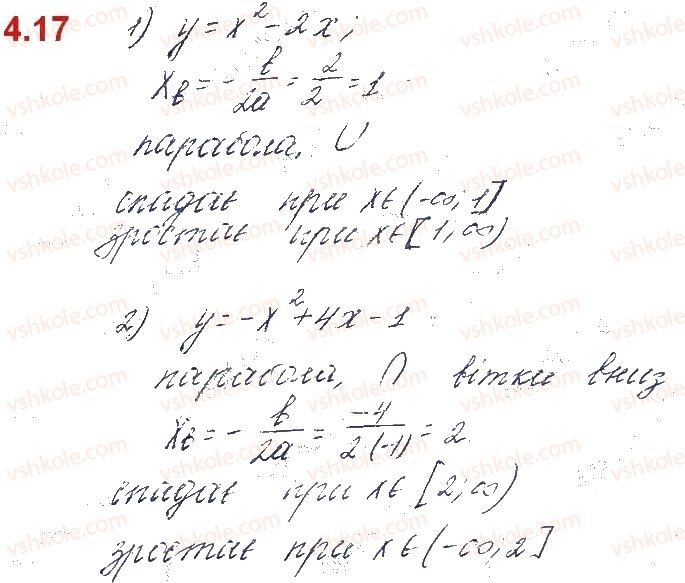 4.17
1) y = x² - 2x;
xв = - в/2a = 2/2 = 1
парабола, ∪
спадає при x∈(-∞; 1]
зростає при x∈[1; ∞)
2) y = -x² + 4x - 1
парабола, ∩ вітки вниз
xв = - в/2a = -4/2(-1) = 2
спадає при x∈[2; ∞)
зростає при x∈(-∞; 2]